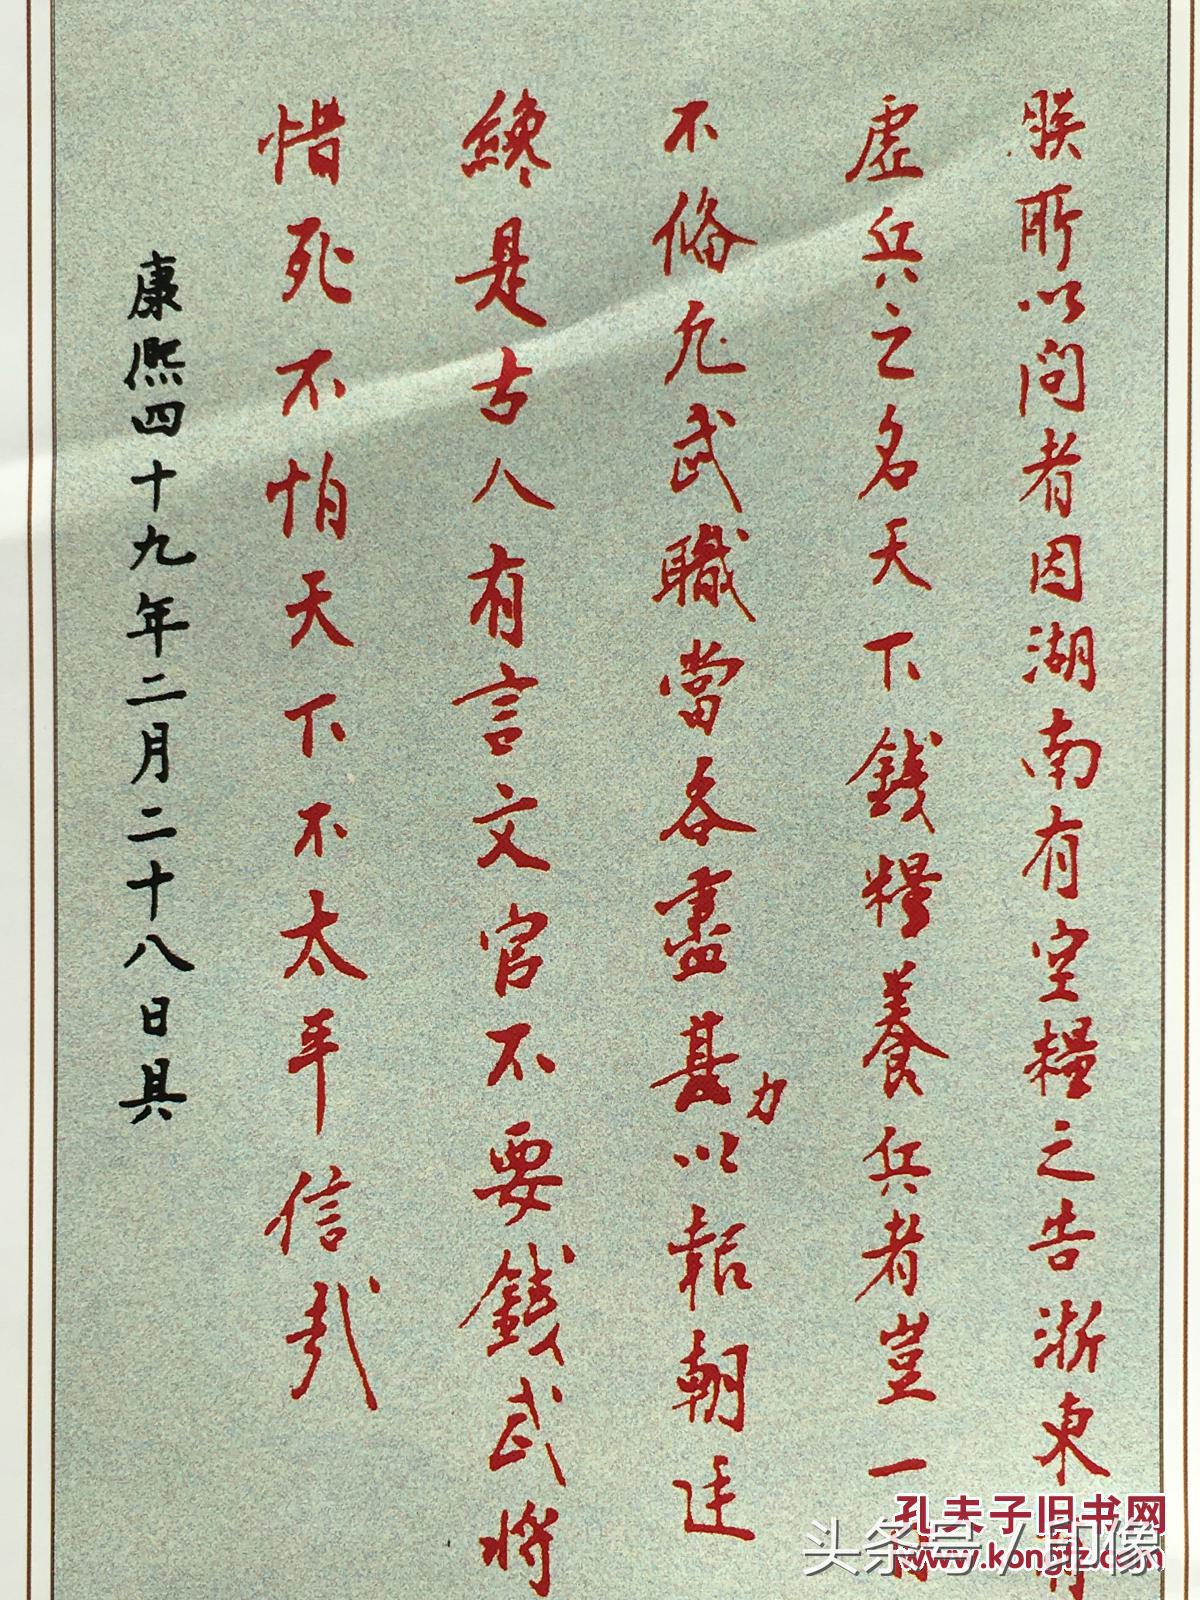 朕所以问者因湖南有空糧之告浙東有
虚兵之名天下錢糧養兵者豈一
不脩凢武職當各盡甚力以報朝廷
纔是古人有言文官不要錢武将
惜死不怕天下不太平信哉
康熙四十九年二月二十八日具
孔夫子旧书网
头条号/印像
www.kongfz.com